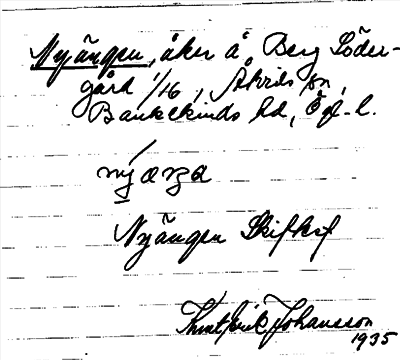 Nyängen, åker å Berg Söder-
gård 1/16, Åtvids sn,
Bankekinds hd, Ögl. l.
nýæŋa
Nyängen Skifteskf
Knut Erik Johansson
1935